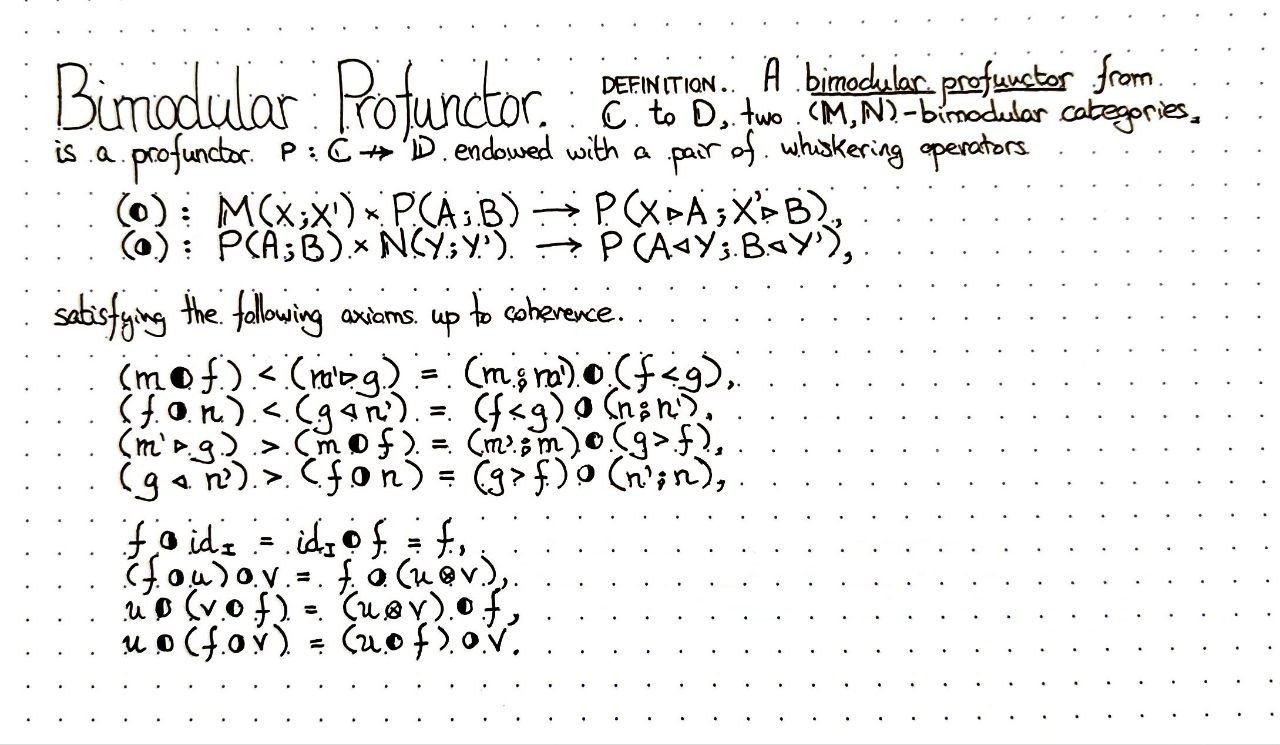 Bimodular Profunctor. DEFINITION. A bimodular profunctor from
ℂ to 𝔻, two (𝕄,ℕ)-bimodular categories,
is a profunctor P : ℂ ⇸ 𝔻 endowed with a pair of whiskering operators
(◐) : 𝕄(X;X') × P(A;B) ⟶ P(X▹A ; X'▹B),
(◑) : P(A;B) × ℕ(Y;Y') ⟶ P(A◃Y ; B◃Y'),
satisfying the following axioms up to coherence.
(m ◐ f) < (m' ▹ g) = (m ⨾ m') ◐ (f < g),
(f ◑ n) < (g ◃ n') = (f < g) ◑ (n ⨾ n'),
(m' ▹ g) > (m ◐ f) = (m' ⨾ m) ◐ (g > f),
(g ◃ n') > (f ◑ n) = (g > f) ◑ (n' ⨾ n),
f ◑ id_I = id_I ◐ f = f,
(f ◑ u) ◑ v = f ◑ (u ⊗ v),
u ◐ (v ◐ f) = (u ⊗ v) ◐ f,
u ◐ (f ◑ v) = (u ◐ f) ◑ v.